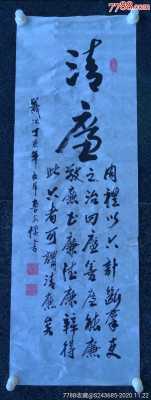 7788.com
清廉
周禮以六计断羣吏
之治曰廉善廉能廉
敬廉正廉法廉辨得
此六者可谓清廉矣
丁亥年
7788收藏 @S243685-2020.11.22